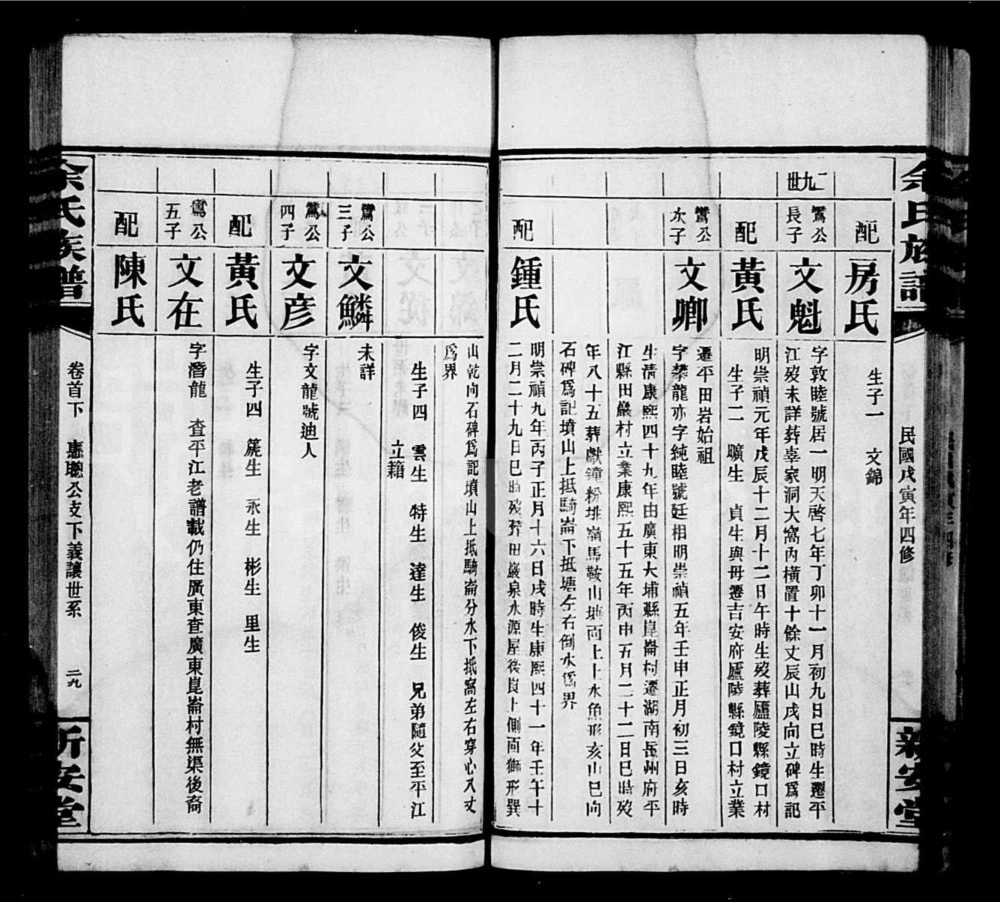 余氏族譜
民國戊寅年四修
新安堂
配 房氏
生子一 文錦
二九世
鸞公長子 文魁
字敦睦號居一明天啓七年丁卯十一月初九日巳時生遷平
江歿未詳葬辜家洞大窩內橫置十餘丈辰山戌向立碑爲記
配 黃氏
明崇禎元年戊辰十二月十二日午時生歿葬廬陵縣鏡口村
生子二 曠生 貞生與母遷吉安府廬陵縣鏡口村立業
鸞公次子 文卿
遷平田岩始祖
字攀龍亦字純睦號廷相明崇禎五年壬申正月初三日亥時
生清康熙四十九年由廣東大埔縣崑崙村遷湖南岳州府平
江縣田巖村立業康熙五十五年丙申五月二十二日巳時歿
年八十五葬獻鐘粉坒窩馬鞍山坡面上上水魚形亥山巳向
石碑爲記墳山上抵騎崙下抵塘左右倒水爲界
配 鍾氏
明崇禎九年丙子正月十六日戌時生康熙四十一年壬午十
二月二十九日巳時歿葬田巖泉水源屋後崀上側面獅形巽
山乾向石碑爲記墳山上抵騎崙分水下抵窩左右穿心八丈
爲界
生子四 雲生 特生 達生 俊生 兄弟隨父至平江
立籍
鸞公三子 文鱗
未詳
鸞公四子 文彥
字文龍號迪人
配 黃氏
生子四 篪生 永生 彬生 里生
鸞公五子 文在
字潛龍 查平江老譜載仍住廣東查廣東崑崙村無渠後裔
配 陳氏
余氏族譜
卷首下 應聰公支下義讓世系 二九
新安堂